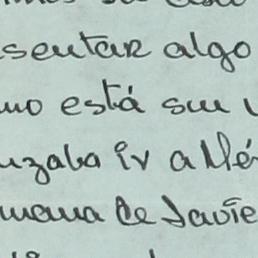 sentar algo
mo está su
nzaba ir a Mé
mana de Javie